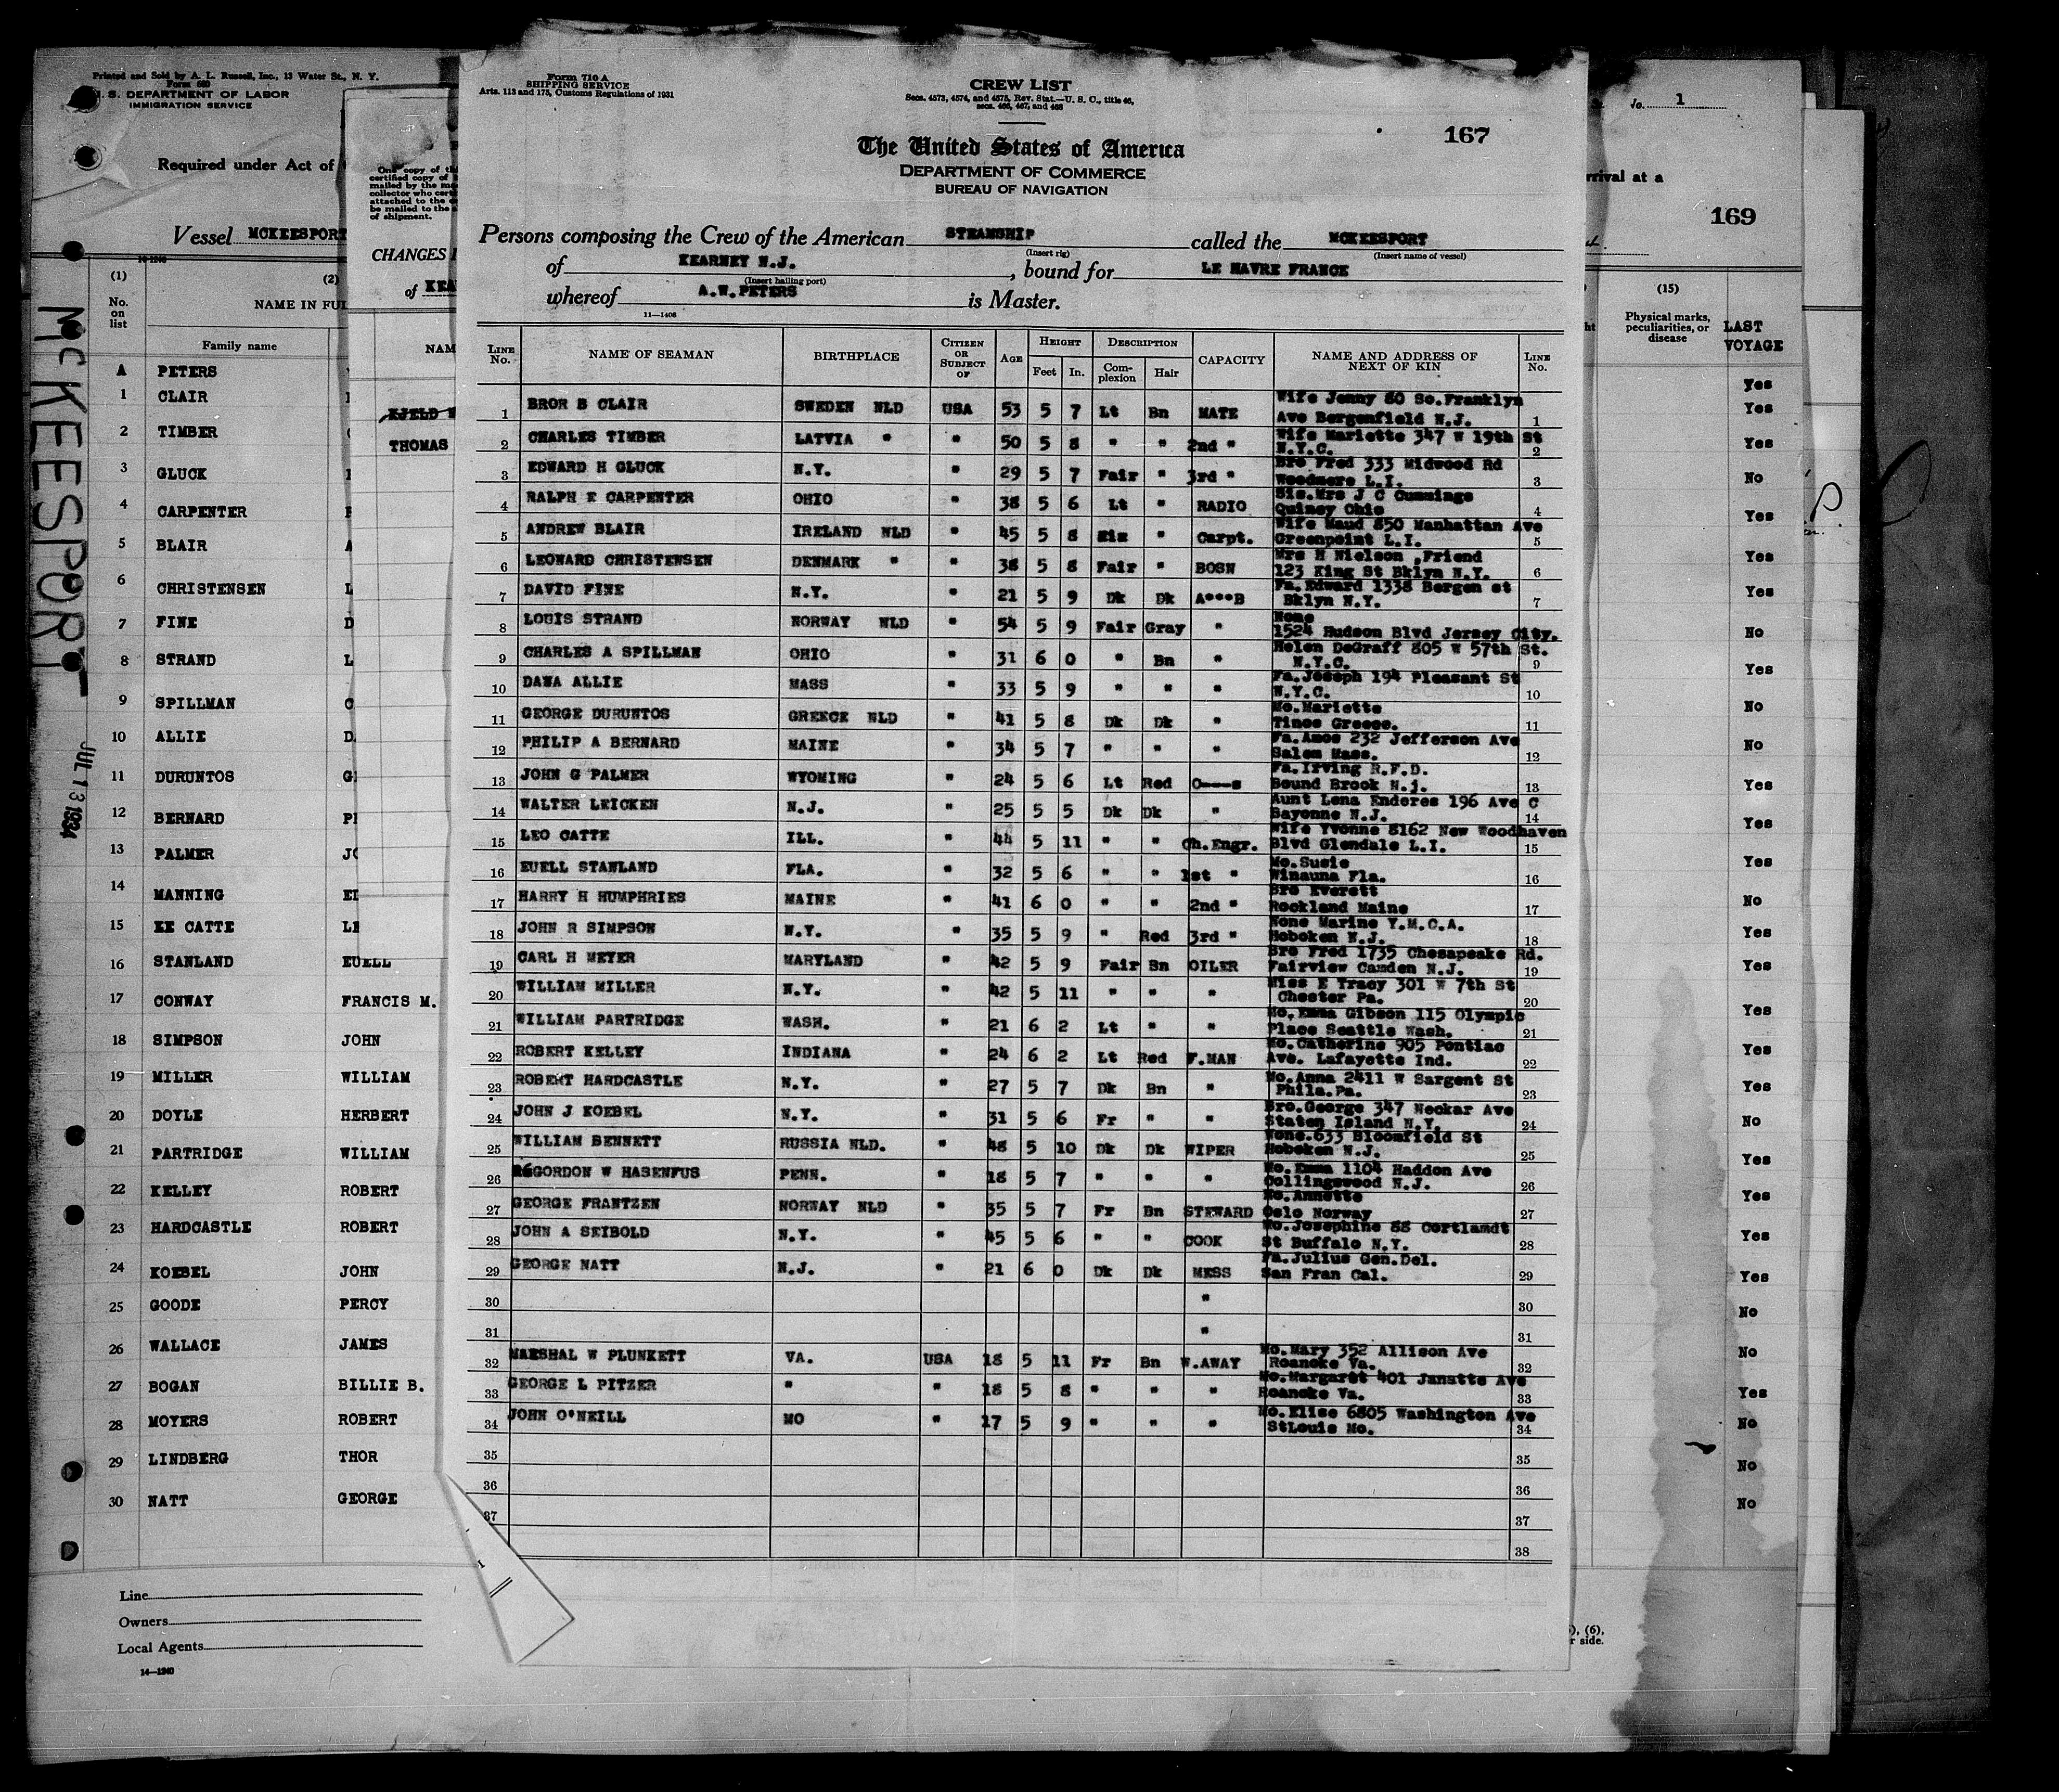 Printed and Sold by A. L. Russell, Inc., 13 Water St., N. Y.
Form 680
U. S. DEPARTMENT OF LABOR
IMMIGRATION SERVICE
Required under Act of
Vessel MCKEESPORT
(1) (2)
No. on list NAME IN FUL
Family name
A PETERS
1 CLAIR
2 TIMBER
3 GLUCK
4 CARPENTER
5 BLAIR A
6 CHRISTENSEN L
7 FINE D
8 STRAND L
9 SPILLMAN C
10 ALLIE D
11 DURUNTOS G
12 BERNARD P
13 PALMER JO
14 MANNING E
15 LE CATTE LE
16 STANLAND EUELL
17 CONWAY FRANCIS M.
18 SIMPSON JOHN
19 MILLER WILLIAM
20 DOYLE HERBERT
21 PARTRIDGE WILLIAM
22 KELLEY ROBERT
23 HARDCASTLE ROBERT
24 KOEBEL JOHN
25 GOODE PERCY
26 WALLACE JAMES
27 BOGAN BILLIE B.
28 MOYERS ROBERT
29 LINDBERG THOR
30 NATT GEORGE
Line
Owners
Local Agents
14—1240
McKEESPORT
JUL 13 1934
One copy of th
certified copy of
mailed by the ma
collector who cert
attached to the
be mailed to the
of shipment.
CHANGES I
of KEA
NAM
KJELD
THOMAS
Form 710 A
SHIPPING SERVICE
Arts. 113 and 175, Customs Regulations of 1931
CREW LIST
Secs. 4573, 4574, and 4575, Rev. Stat.—U. S. C., title 46,
secs. 466, 467, and 468
167
The United States of America
DEPARTMENT OF COMMERCE
BUREAU OF NAVIGATION
Persons composing the Crew of the American STEAMSHIP called the MCKEESPORT
(Insert rig) (Insert name of vessel)
of KEARNEY N.J. , bound for LE HAVRE FRANCE
(Insert hailing port)
whereof A.W.PETERS is Master.
11—1408
LINE No. NAME OF SEAMAN BIRTHPLACE CITIZEN OR SUBJECT OF AGE HEIGHT Feet In. DESCRIPTION Complexion Hair CAPACITY NAME AND ADDRESS OF NEXT OF KIN LINE No.
1 BROR B CLAIR SWEDEN NLD USA 53 5 7 Lt Bn MATE Wife Jenny 80 So.Franklyn
Ave Bergenfield N.J. 1
2 CHARLES TIMBER LATVIA " " 50 5 8 " " 2nd " Wife Mariette 347 W 19th St
N.Y.C. 2
3 EDWARD H GLUCK N.Y. " 29 5 7 Fair " 3rd " Bro Fred 333 Midwood Rd
Woodmere L.I. 3
4 RALPH E CARPENTER OHIO " 38 5 6 Lt " RADIO Sis.Mrs J C Cummings
Quincy Ohio 4
5 ANDREW BLAIR IRELAND NLD " 45 5 8 " Carpt. Wife Maud 850 Manhattan Ave
Greenpoint L.I. 5
6 LEONARD CHRISTENSEN DENMARK " " 38 5 8 Fair " BOSN Mrs H Nielson ,Friend
123 King St Bklyn N.Y. 6
7 DAVID FINE N.Y. " 21 5 9 Dk Dk A***B Fa.Edward 1338 Bergen st
Bklyn N.Y. 7
8 LOUIS STRAND NORWAY NLD " 54 5 9 Fair Gray " None
1524 Hudson Blvd Jersey City.
9 CHARLES A SPILLMAN OHIO " 31 6 0 " Bn " Helen DeGraff 805 W 57th St.
N.Y.C. 9
10 DANA ALLIE MASS " 33 5 9 " " " Fa.Joseph 194 Pleasant St
N.Y.C. 10
11 GEORGE DURUNTOS GREECE NLD " 41 5 8 Dk Dk " Mo.Mariette
Tinos Greece. 11
12 PHILIP A BERNARD MAINE " 34 5 7 " " " Fa.Amos 232 Jefferson Ave
Salem Mass. 12
13 JOHN G PALMER WYOMING " 24 5 6 Lt Red O---S Fa.Irving R.F.D.
Bound Brook N.j. 13
14 WALTER LEICKEN N.J. " 25 5 5 Dk Dk " Aunt Lena Enderes 196 Ave C
Bayonne N.J. 14
15 LEO CATTE ILL. " 44 5 11 " " Ch.Engr. Wife Yvonne 8162 New Woodhaven
Blvd Glendale L.I. 15
16 EUELL STANLAND FLA. " 32 5 6 " " 1st " Mo.Susie
Winauna Fla. 16
17 HARRY H HUMPHRIES MAINE " 41 6 0 " " 2nd " Bro Everett
Rockland Maine 17
18 JOHN R SIMPSON N.Y. " 35 5 9 " Red 3rd " None Marine Y.M.C.A.
Hoboken N.J. 18
19 CARL H MEYER MARYLAND " 42 5 9 Fair Bn OILER Bro Fred 1735 Chesapeake Rd.
Fairview Camden N.J. 19
20 WILLIAM MILLER N.Y. " 42 5 11 " " " Miss E Tracy 301 W 7th St
Chester Pa. 20
21 WILLIAM PARTRIDGE WASH. " 21 6 2 Lt " " Mo.Emma Gibson 115 Olympic
Place Seattle Wash. 21
22 ROBERT KELLEY INDIANA " 24 6 2 Lt Red F.MAN Mo.Catherine 905 Pontiac
Ave. Lafayette Ind. 22
23 ROBERT HARDCASTLE N.Y. " 27 5 7 Dk Bn " Mo.Anna 2411 W Sargent St
Phila.Pa. 23
24 JOHN J KOEBEL N.Y. " 31 5 6 Fr " " Bro.George 347 Neckar Ave
Staten Island N.Y. 24
25 WILLIAM BENNETT RUSSIA NLD. " 48 5 10 Dk Dk WIPER None.633 Bloomfield St
Hoboken N.J. 25
26 GORDON W HASENFUS PENN. " 18 5 7 " " " Mo.Emma 1104 Haddon Ave
Collingswood N.J. 26
27 GEORGE FRANTZEN NORWAY NLD " 35 5 7 Fr Bn STEWARD Mo.Annette
Oslo Norway 27
28 JOHN A SEIBOLD N.Y. " 45 5 6 " " COOK Mo.Josephine 88 Cortlamdt
St Buffalo N.Y. 28
29 GEORGE NATT N.J. " 21 6 0 Dk Dk MESS Fa.Julius Gen.Del.
San Fran Cal. 29
30 " 30
31 " 31
32 MARSHAL W PLUNKETT VA. USA 18 5 11 Fr Bn W.AWAY Mo.Mary 352 Allison Ave
Roanoke Va. 32
33 GEORGE L PITZER " " 18 5 8 " " " Mo.Margaret 401 Janatte Ave
Roanoke Va. 33
34 JOHN O'NEILL MO " 17 5 9 " " " Mo.Elise 6805 Washington Ave
StLouis Mo. 34
35 35
36 36
37 37
38
No. 1
rrival at a
169
(15)
Physical marks, peculiarities, or disease
LAST VOYAGE
ht
Yes
Yes
Yes
No
Yes
Yes
Yes
No
Yes
No
No
Yes
Yes
Yes
No
Yes
Yes
Yes
Yes
Yes
No
Yes
Yes
Yes
Yes
No
No
Yes
No
No
No
), (6),
r side.